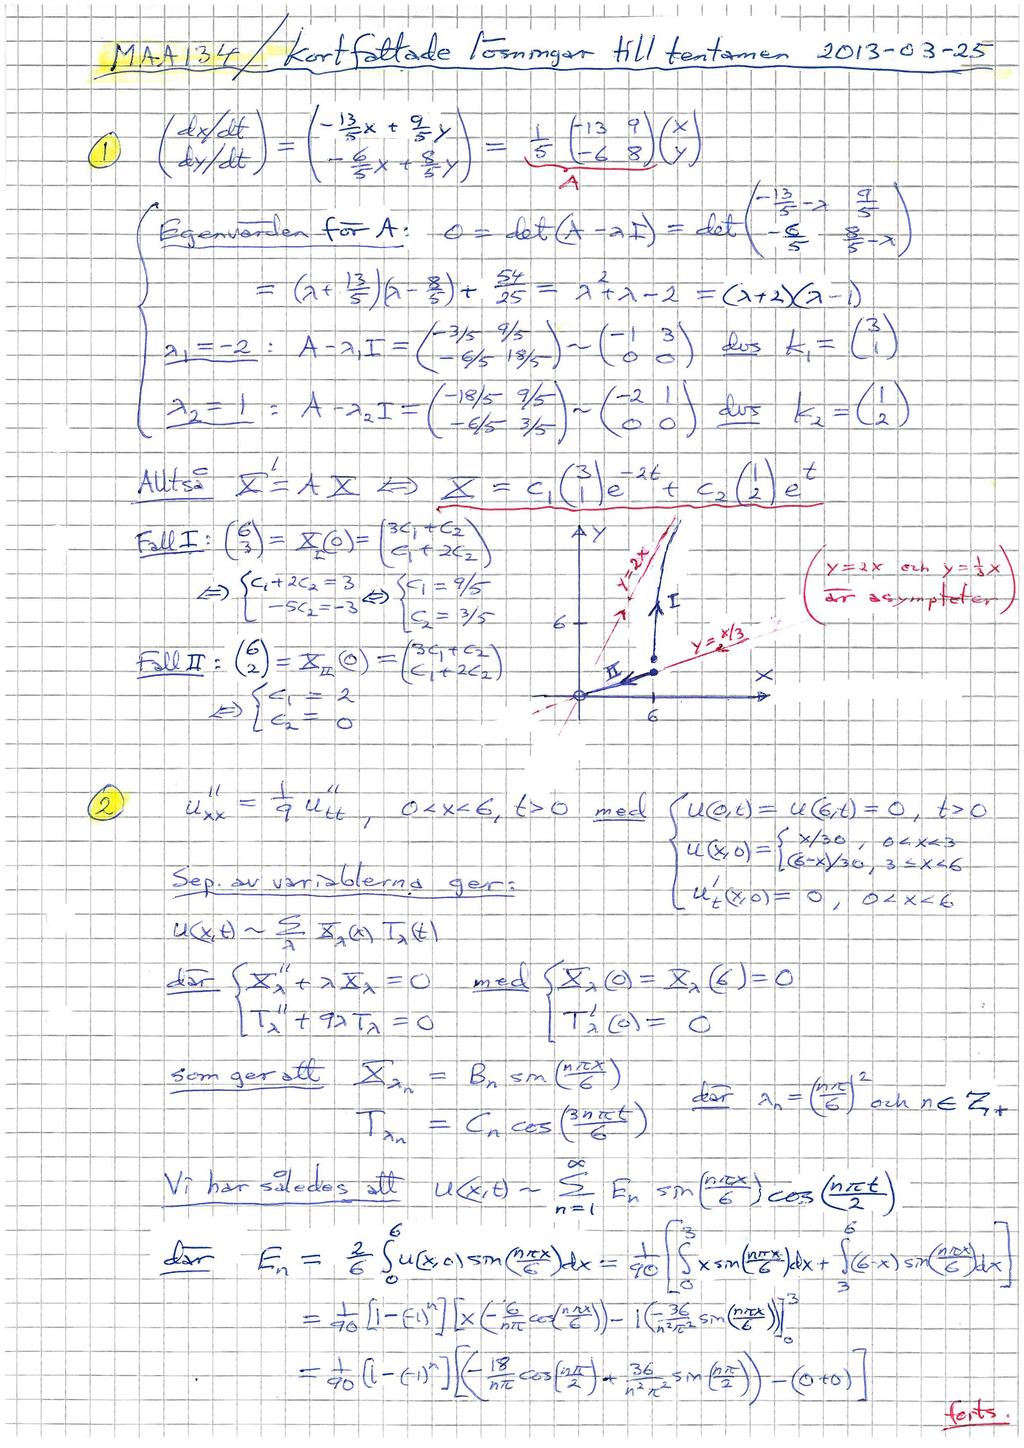 MAA134 / Kortfattade lösningar till tentamen 2013-03-25
1 (dx/dt dy/dt) = (-13/5 x + 9/5 y -6/5 x + 8/5 y) = 1/5 (-13 9 -6 8) (x y)
A
Egenvärden för A: 0 = det(A - λI) = det (-13/5 - λ 9/5 -6/5 8/5 - λ)
= (λ + 13/5)(λ - 8/5) + 54/25 = λ² + λ - 2 = (λ+2)(λ-1)
λ₁ = -2 : A - λ₁I = (-3/5 9/5 -6/5 18/5) ~ (-1 3 0 0) dvs k₁ = (3 1)
λ₂ = 1 : A - λ₂I = (-18/5 9/5 -6/5 3/5) ~ (-2 1 0 0) dvs k₂ = (1 2)
Alltså X' = AX ⇔ X = c₁ (3 1) e^-2t + c₂ (1 2) e^t
Fall I: (6 3) = X_I(0) = (3c₁ + c₂ c₁ + 2c₂)
⇔ { c₁ + 2c₂ = 3 -5c₂ = -3 ⇔ { c₁ = 9/5 c₂ = 3/5
Fall II: (6 2) = X_II(0) = (3c₁ + c₂ c₁ + 2c₂)
⇔ { c₁ = 2 c₂ = 0
y
y=2x
I
6
y=x/3
II
x
6
(y=2x och y=1/3 x
är asymptoter)
2 u''xx = 1/9 u''tt , 0<x<6, t>0 med { u(0,t) = u(6,t) = 0, t>0
u(x,0) = { x/30 , 0<x<3
(6-x)/30, 3≤x<6
u't(x,0) = 0, 0<x<6
Sep. av variablerna ger:
u(x,t) ~ Σ_λ X_λ(x) T_λ(t)
där { X_λ'' + λX_λ = 0 med { X_λ(0) = X_λ(6) = 0
T_λ'' + 9λT_λ = 0 T'_λ(0) = 0
som ger att X_λn = B_n sin(nπx/6)
T_λn = C_n cos(3nπt/6)
där λ_n = (nπ/6)² och n ∈ Z₊
Vi har således att u(x,t) ~ Σ_n=1^∞ E_n sin(nπx/6) cos(nπt/2)
där E_n = 2/6 ∫₀⁶ u(x,0) sin(nπx/6)dx = 1/90 [∫₀³ x sin(nπx/6)dx + ∫₃⁶ (6-x) sin(nπx/6)dx]
= 1/90 [1-(-1)ⁿ] [x(-6/nπ cos(nπx/6)) - 1(-36/n²π² sin(nπx/6))]₀³
= 1/90 [1-(-1)ⁿ] [(-18/nπ cos(nπ/2) + 36/n²π² sin(nπ/2)) - (0+0)]
forts.